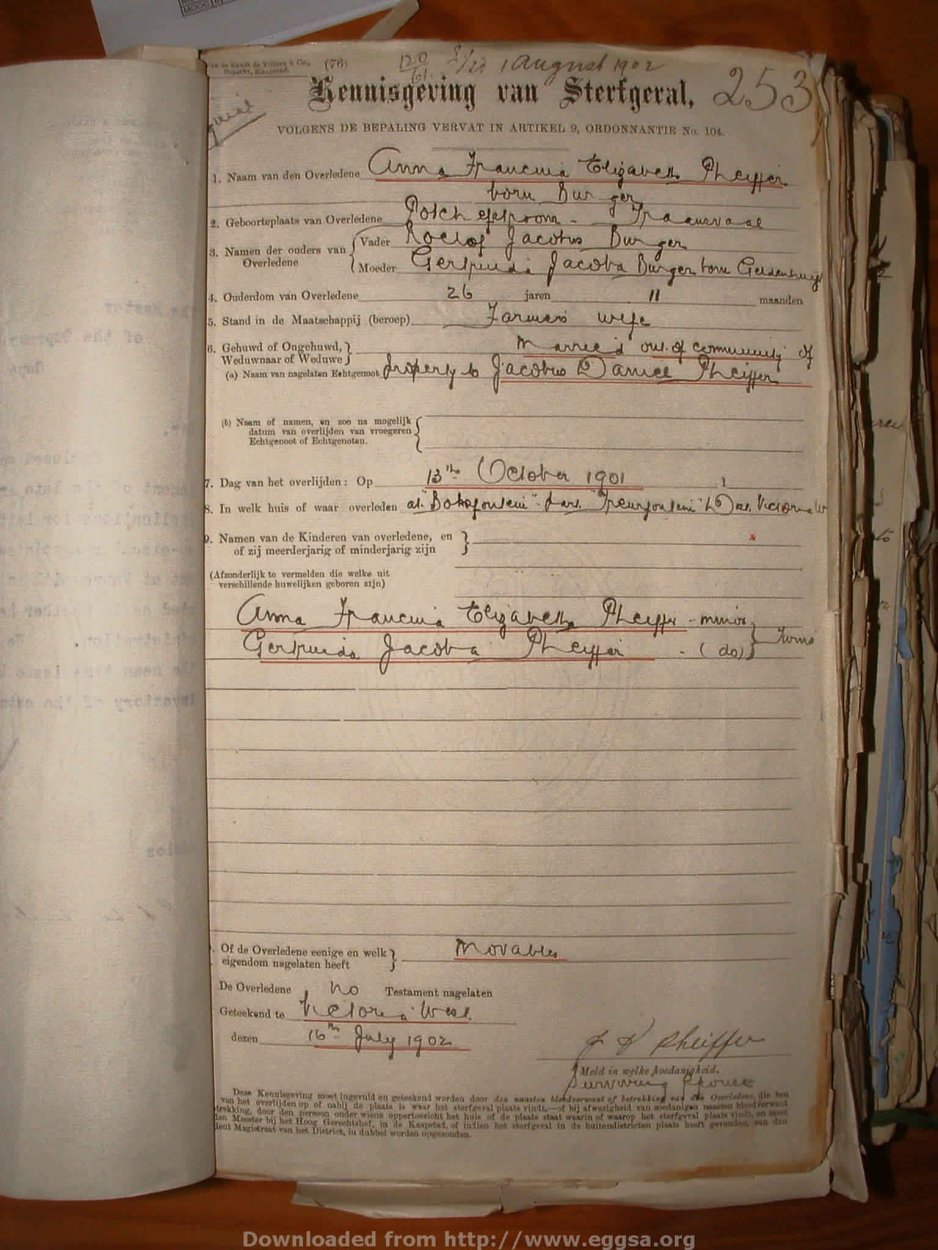 MOOC
van de Sandt de Villiers & Co., (76) 120/61. 1 August 1902
Beperkt, Kaapstad.
Kennisgeving van Sterfgeval, 253
VOLGENS DE BEPALING VERVAT IN ARTIKEL 9, ORDONNANTIE No. 104.
1. Naam van den Overledene Anna Francina Elizabeth Pheiffer
born Burger
2. Geboorteplaats van Overledene Potchefstroom - Transvaal
3. Namen der ouders van Overledene { Vader Roelof Jacobus Burger
Moeder Gertruida Jacoba Burger born Geldenhuijs
4. Ouderdom van Overledene 26 jaren 11 maanden
5. Stand in de Maatschappij (beroep) Farmers wife
6. Gehuwd of Ongehuwd, Weduwnaar of Weduwe } Married out of community of
(a) Naam van nagelaten Echtgenoot property to Jacobus Daniel Pheiffer
(b) Naam of namen, en zoo na mogelijk
datum van overlijden van vroegeren
Echtgenoot of Echtgenoten.
7. Dag van het overlijden: Op 13th October 1901
8. In welk huis of waar overleden at "Bokfontein"
9. Namen van de Kinderen van overledene, en
of zij meerderjarig of minderjarig zijn
(Afzonderlijk te vermelden die welke uit
verschillende huwelijken geboren zijn)
Anna Francina Elizabeth Pheiffer - minor } Twins
Gertruida Jacoba Pheiffer - (do)
Of de Overledene eenige en welk } Movables
eigendom nagelaten heeft
De Overledene no Testament nagelaten
Geteekend te Victoria West
dezen 16th July 1902
J D Pheiffer
Meld in welke hoedanigheid.
Surviving Spouse
Deze Kennisgeving moet ingevuld en geteekend worden door den naasten bloedverwant of betrekking van den Overledene, die ten
van het overlijden op of nabij de plaats is waar het sterfgeval plaats vindt,—of bij afwezigheid van zoodanigen naasten bloedverwant
trekking, door den persoon onder wiens oppertoezicht het huis of de plaats staat waarin of waarop het sterfgeval plaats vindt, en moet
den Meester bij het Hoog Gerechtshof, in de Kaapstad, of indien het sterfgeval in de buitendistricten plaats heeft gevonden, aan den
dent Magistraat van het District, in dubbel worden opgezonden.
Downloaded from http://www.eggsa.org